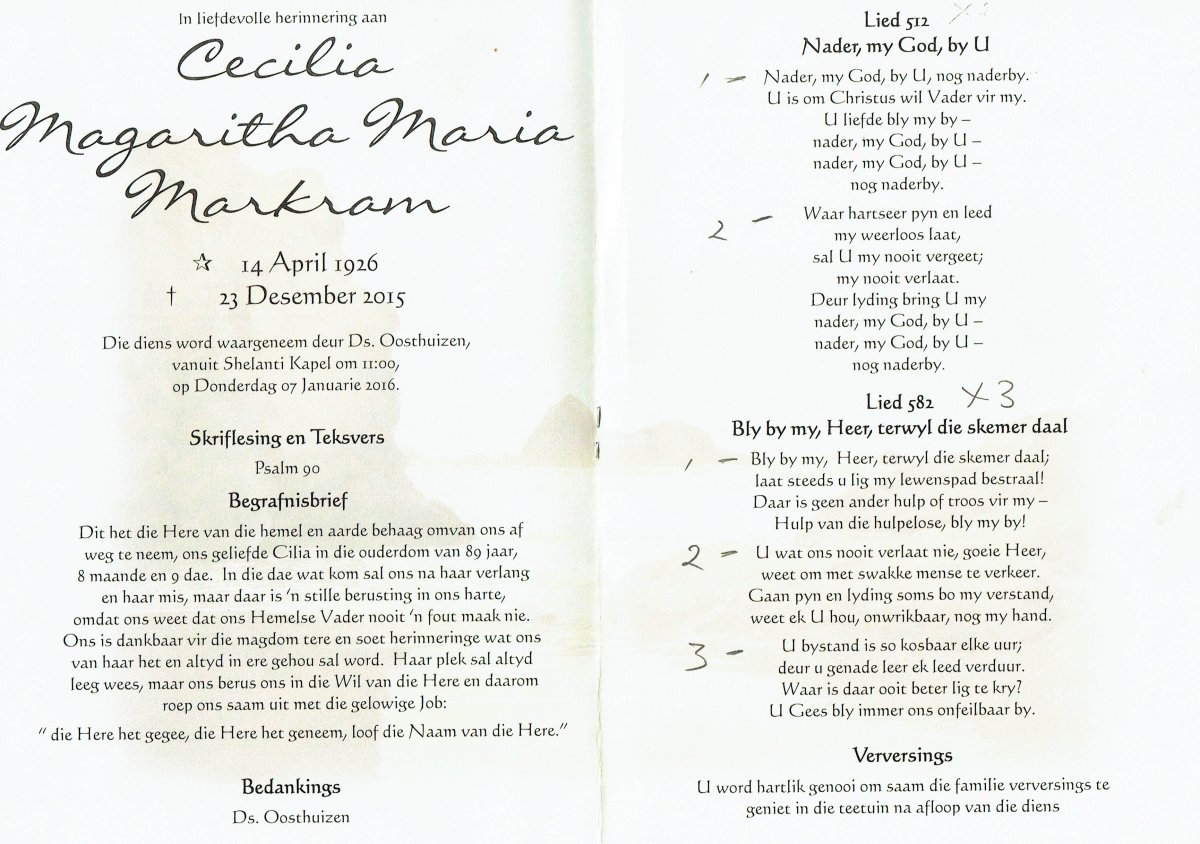 In liefdevolle herinnering aan
Cecilia
Magaritha Maria
Markram
☆ 14 April 1926
† 23 Desember 2015
Die diens word waargeneem deur Ds. Oosthuizen,
vanuit Shelanti Kapel om 11:00,
op Donderdag 07 Januarie 2016.
Skriflesing en Teksvers
Psalm 90
Begrafnisbrief
Dit het die Here van die hemel en aarde behaag omvan ons af
weg te neem, ons geliefde Cilia in die ouderdom van 89 jaar,
8 maande en 9 dae. In die dae wat kom sal ons na haar verlang
en haar mis, maar daar is 'n stille berusting in ons harte,
omdat ons weet dat ons Hemelse Vader nooit 'n fout maak nie.
Ons is dankbaar vir die magdom tere en soet herinneringe wat ons
van haar het en altyd in ere gehou sal word. Haar plek sal altyd
leeg wees, maar ons berus ons in die Wil van die Here en daarom
roep ons saam uit met die gelowige Job:
" die Here het gegee, die Here het geneem, loof die Naam van die Here."
Bedankings
Ds. Oosthuizen
Lied 512
Nader, my God, by U
1 - Nader, my God, by U, nog naderby.
U is om Christus wil Vader vir my.
U liefde bly my by –
nader, my God, by U –
nader, my God, by U –
nog naderby.
2 - Waar hartseer pyn en leed
my weerloos laat,
sal U my nooit vergeet;
my nooit verlaat.
Deur lyding bring U my
nader, my God, by U –
nader, my God, by U –
nog naderby.
Lied 582 x 3
Bly by my, Heer, terwyl die skemer daal
1 - Bly by my, Heer, terwyl die skemer daal;
laat steeds u lig my lewenspad bestraal!
Daar is geen ander hulp of troos vir my –
Hulp van die hulpelose, bly my by!
2 - U wat ons nooit verlaat nie, goeie Heer,
weet om met swakke mense te verkeer.
Gaan pyn en lyding soms bo my verstand,
weet ek U hou, onwrikbaar, nog my hand.
3 - U bystand is so kosbaar elke uur;
deur u genade leer ek leed verduur.
Waar is daar ooit beter lig te kry?
U Gees bly immer ons onfeilbaar by.
Verversings
U word hartlik genooi om saam die familie verversings te
geniet in die teetuin na afloop van die diens